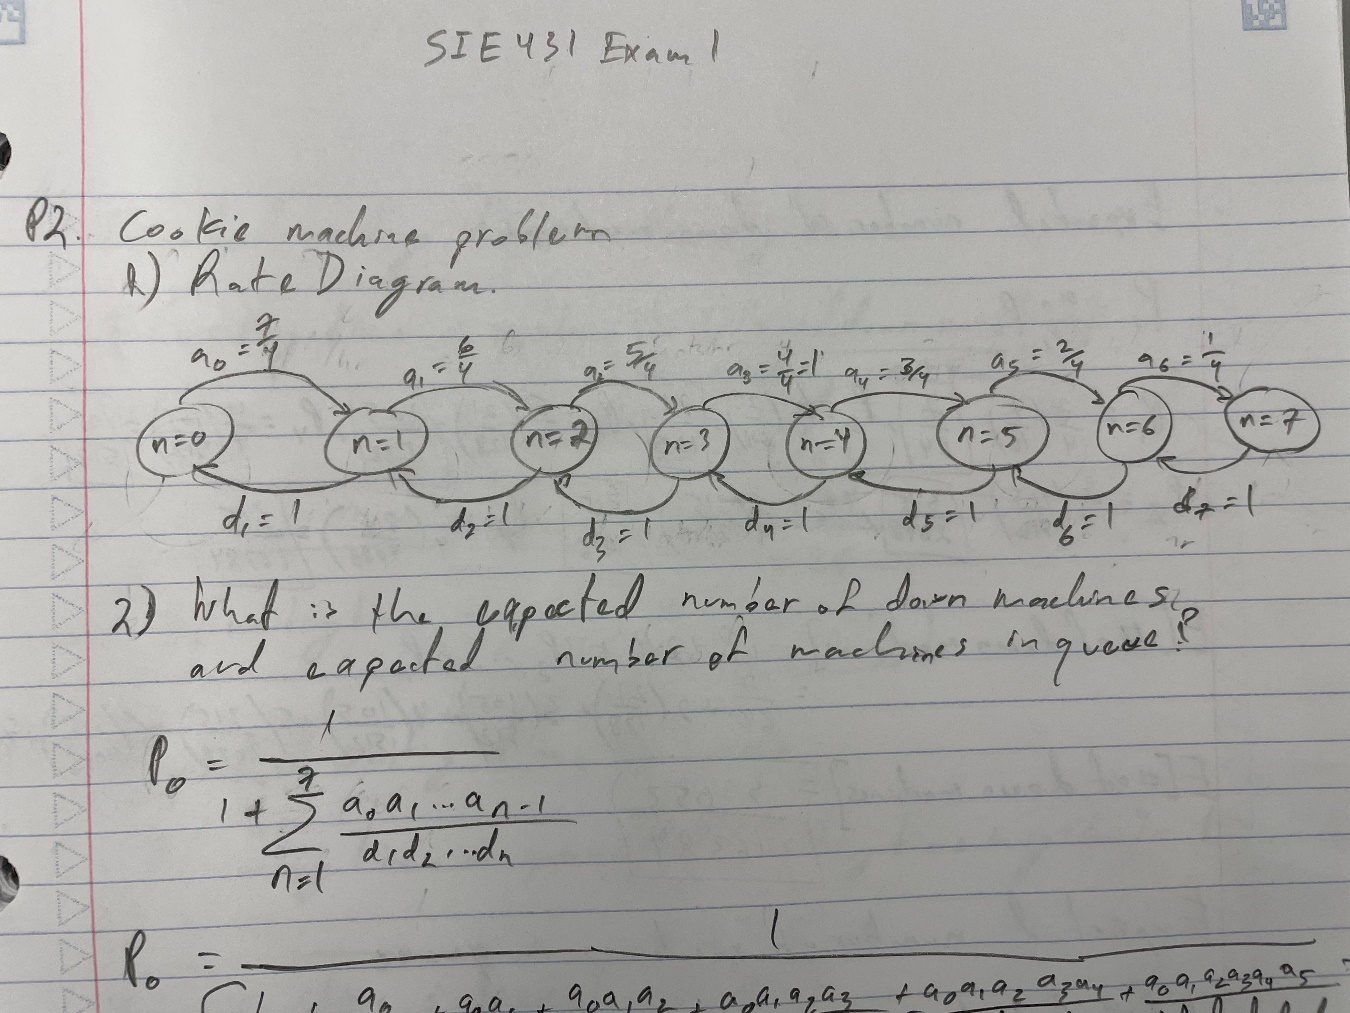 SIE 431 Exam 1
P2. Cookie machine problem
1) Rate Diagram.
a0 = 7/4 a1 = 6/4 a2 = 5/4 a3 = 4/4 = 1 a4 = 3/4 a5 = 2/4 a6 = 1/4
n=0 n=1 n=2 n=3 n=4 n=5 n=6 n=7
d1 = 1 d2 = 1 d3 = 1 d4 = 1 d5 = 1 d6 = 1 d7 = 1
2) What is the expected number of down machines,
and expected number of machines in queue?
P0 = 1
1 + 7 Σ n=1 a0 a1 ... an-1
d1 d2 ... dn
P0 = 1
1 + a0 + a0a1 + a0a1a2 + a0a1a2a3 + a0a1a2a3a4 + a0a1a2a3a4a5